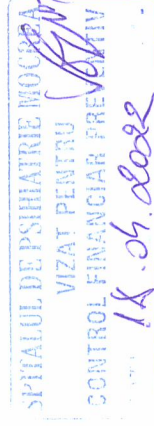 SPITALUL DE PSIHIATRIE MOCREA
VIZAT PENTRU
CONTROL FINANCIAR PREVENTIV
18.04.2022